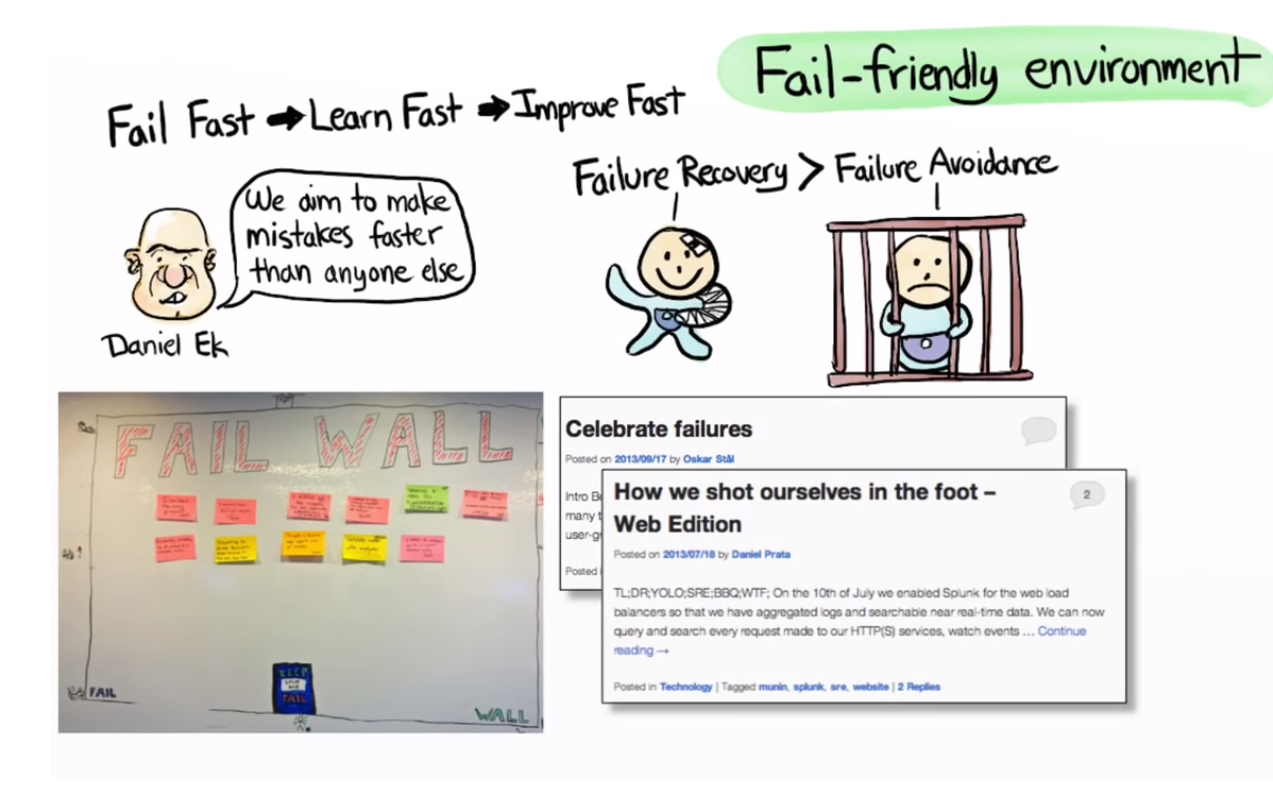 Fail-friendly environment
Fail Fast ➡ Learn Fast ➡ Improve Fast
Failure Recovery > Failure Avoidance
We aim to make
mistakes faster
than anyone else
Daniel Ek
FAIL WALL
KEEP
FAIL
FAIL
WALL
Celebrate failures
Posted on 2013/09/17 by Oskar Stål
Intro
many
user-gr
Posted
How we shot ourselves in the foot –
Web Edition
2
Posted on 2013/07/18 by Daniel Prata
TL;DR;YOLO;SRE;BBQ;WTF; On the 10th of July we enabled Splunk for the web load
balancers so that we have aggregated logs and searchable near real-time data. We can now
query and search every request made to our HTTP(S) services, watch events … Continue
reading →
Posted in Technology | Tagged munin, splunk, sre, website | 2 Replies